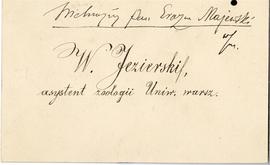 Wielmożny pan Erazm Majewski
W. Jezierski,
asystent zoologii Uniw. warsz.